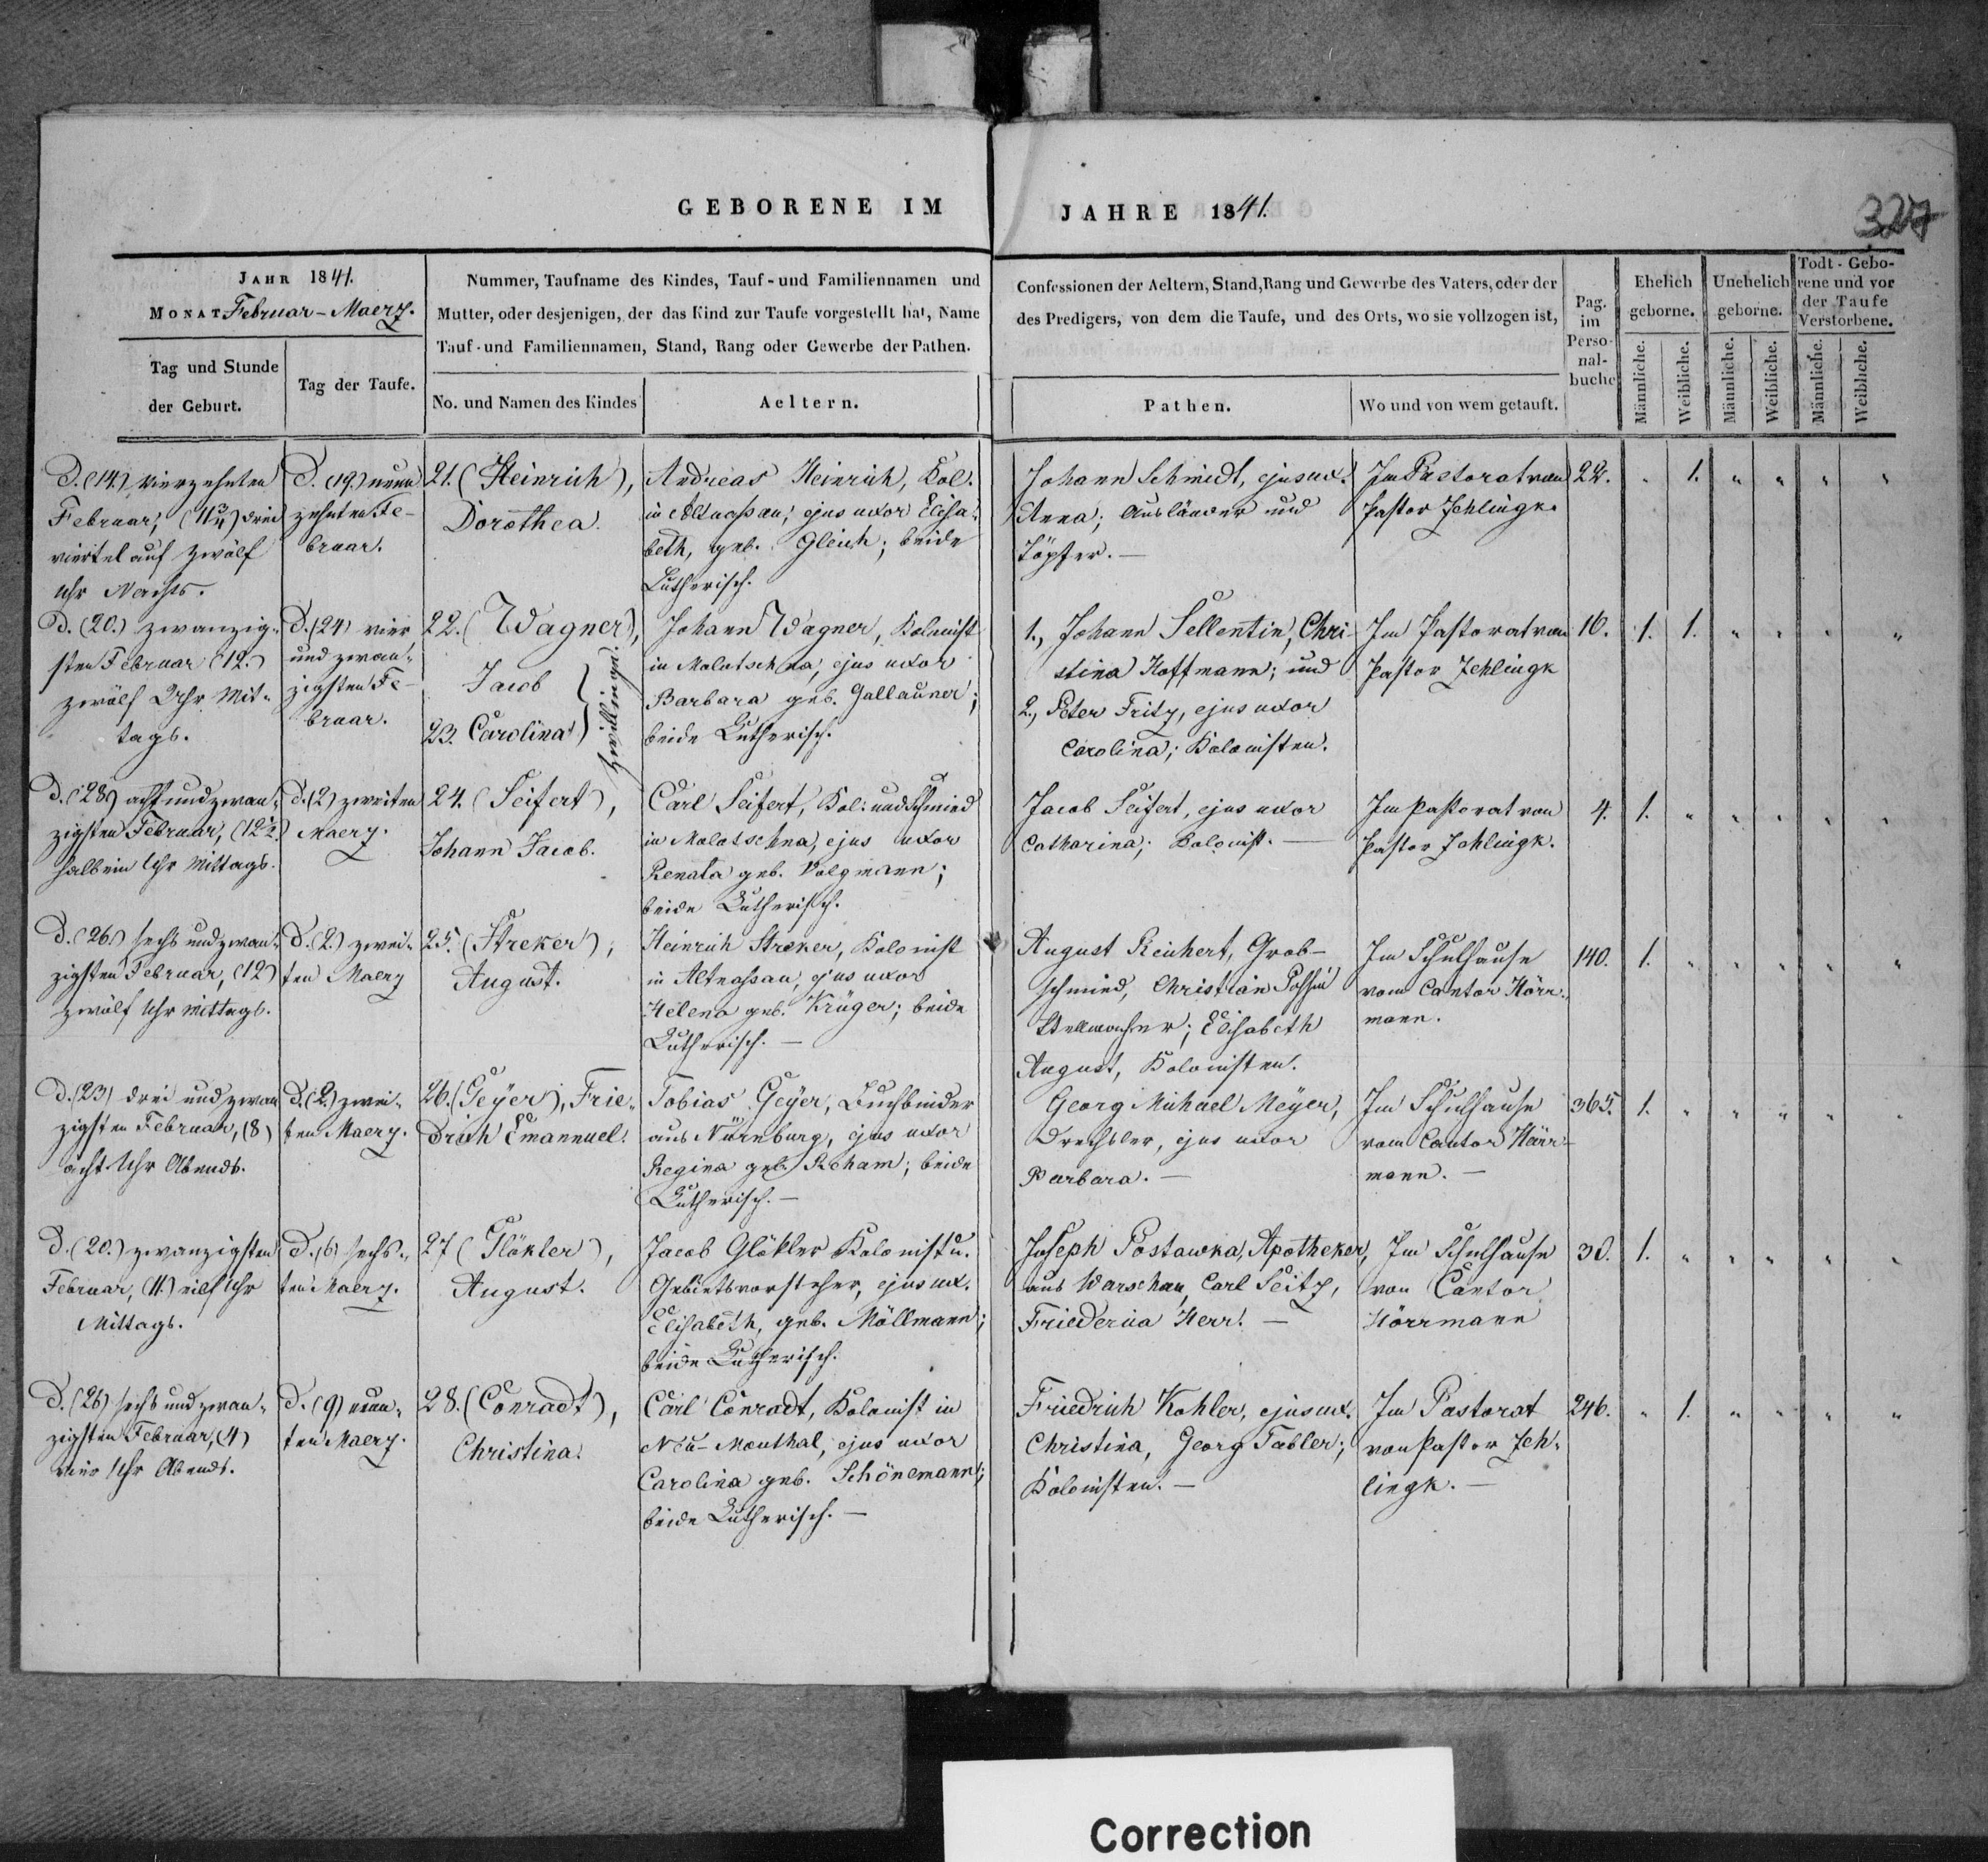 GEBORENE IM
JAHRE 1841.
327
JAHR 1841.
MONAT Februar - Maerz.
Tag und Stunde
der Geburt.
Tag der Taufe.
Nummer, Taufname des Kindes, Tauf- und Familiennamen und
Mutter, oder desjenigen, der das Kind zur Taufe vorgestellt hat, Name
Tauf- und Familiennamen, Stand, Rang oder Gewerbe der Pathen.
No. und Namen des Kindes
Aeltern.
Confessionen der Aeltern, Stand, Rang und Gewerbe des Vaters, oder der
des Predigers, von dem die Taufe, und des Orts, wo sie vollzogen ist,
Pathen.
Wo und von wem getauft.
Pag.
im
Perso-
nal-
buche
Ehelich
geborne.
Unehelich
geborne.
Todt-Gebo-
rene und vor
der Taufe
Verstorbene.
Männliche.
Weibliche.
Männliche.
Weibliche.
Männliche.
Weibliche.
D. (14.) vierzehnten
Februar, (11¾) drei
viertel auf zwölf
Uhr Nachts.
D. (19.) neun
zehnten Fe-
bruar.
21. (Heinrich),
Dorothea.
Andreas Heinrich, Kol.
in Altnassau; ejus uxor Elisa-
beth, geb. Gleich; beide
Lutherisch.
Johann Schmidt, ejus ux.
Anna; Ausländer und
Töpfer. —
Im Pastorat von
Pastor Zehlingk.
22. " 1. " " " "
D. (20.) zwanzig-
sten Februar (12.)
zwölf Uhr Mit-
tags.
D. (24) vier
und zwan-
zigsten Fe-
bruar.
22. (Wagner),
Jacob
23. Carolina
Zwillinge.
Johann Wagner, Kolonist
in Molotschna, ejus uxor
Barbara geb. Gallauner;
beide Lutherisch.
1., Johann Sellentin, Chri-
stina Hoffmann; und
2., Peter Fritz, ejus uxor
Carolina; Kolonisten.
Im Pastorat von
Pastor Zehlingk
16. 1. 1. " " " "
D. (28) acht und zwan-
zigsten Februar, (12½)
halb ein Uhr Mittags.
D. (2) zweiten
Maerz.
24. (Seifert),
Johann Jacob.
Carl Seifert, Kol: und Schmied
in Molotschna, ejus uxor
Renata geb. Volgmann;
beide Lutherisch.
Jacob Seifert, ejus uxor
Catharina; Kolonist. —
Im Pastorat von
Pastor Zehlingk.
4. 1. " " " " "
D. (26.) sechs und zwan-
zigsten Februar, (12)
zwölf Uhr Mittags.
D. (2.) zwei-
ten Maerz
25. (Streker),
August.
Heinrich Streker, Kolonist
in Altnassau, ejus uxor
Helena geb. Krüger; beide
Lutherisch. —
August Reichert, Grob-
schmied, Christian Possin
Stellmacher; Elisabeth
August, Kolonisten.
Im Schulhause
vom Cantor Hörr-
mann.
140. 1. " " " " "
D. (23) drei und zwan
zigsten Februar, (8)
acht Uhr Abends.
D. (2.) zwei-
ten Maerz.
26. (Geyer), Frie-
drich Emannuel.
Tobias Geyer, Buchbinder
aus Nürnburg, ejus uxor
Regina geb. Reham; beide
Lutherisch. —
Georg Michael Meyer,
Drechsler, ejus uxor
Barbara. —
Im Schulhause
vom Cantor Hörr-
mann. —
365. 1. " " " " "
D. (20.) zwanzigsten
Februar, (11.) eilf Uhr
Mittags.
D. (6) sechs-
ten Maerz.
27 (Glökler),
August.
Jacob Glökler Kolonist u.
Gebietsvorsteher, ejus ux.
Elisabeth, geb. Möllmann;
beide Lutherisch.
Joseph Postawka, Apotheker,
aus Warschau, Carl Seitz,
Friederica Herr. —
Im Schulhause
von Cantor
Hörrmann
38. 1. " " " " "
D. (26) sechs und zwan-
zigsten Februar, (4)
vier Uhr Abends.
D. (9) neun-
ten Maerz.
28. (Conradt),
Christina.
Carl Conradt, Kolonist in
Neu-Monthal, ejus uxor
Carolina geb. Schönemann;
beide Lutherisch. —
Friedrich Kohler, ejus ux.
Christina, Georg Tabler;
Kolonisten. —
Im Pastorat
von Pastor Zeh-
lingk. —
246. " 1. " " " "
Correction